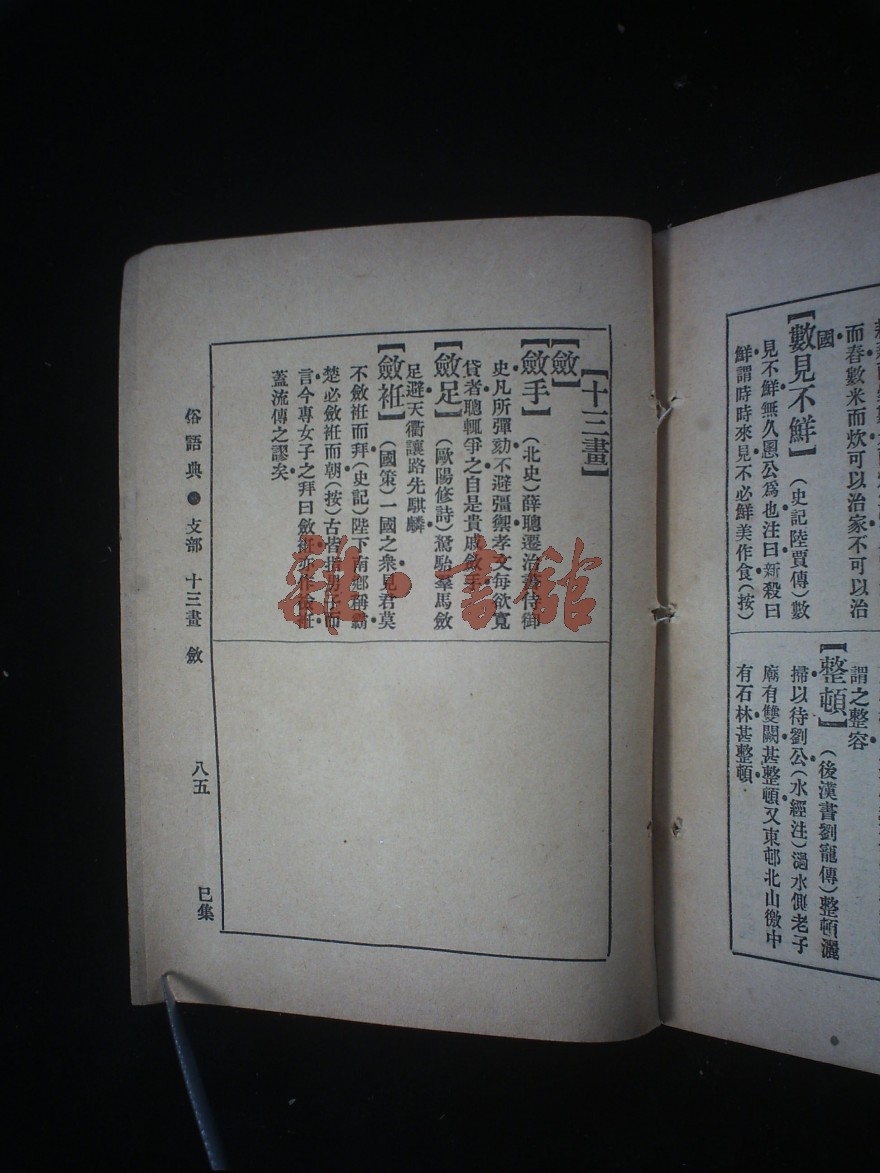 而舂數米而炊可以治家不可以治
國
【數見不鮮】(史記陸賈傳)數
見不鮮無久慁公爲也注曰新殺曰
鮮謂時時來見不必鮮美作食(按)
謂之整容
【整頓】(後漢書劉寵傳)整頓灑
掃以待劉公(水經注)渦水側老子
廟有雙闕甚整頓又東邨北山徼中
有石林甚整頓
【十三畫】
【斂】
【斂手】(北史)薛聰遷治書侍御
史凡所彈劾不避彊禦孝文每欲寬
貸者聰輒爭之自是貴戚斂手
【斂足】(歐陽修詩)駑駘羣馬斂
足避天衢讓路先騏驎
【斂袵】(國策)一國之衆見君莫
不斂袵而拜(史記)陛下南鄉稱霸
楚必斂袵而朝(按)古皆指男子而
言今專女子之拜曰斂袵亦作襝袵
蓋流傳之謬矣
俗語典●攴部 十三畫 斂 八五 巳集
雜·書館